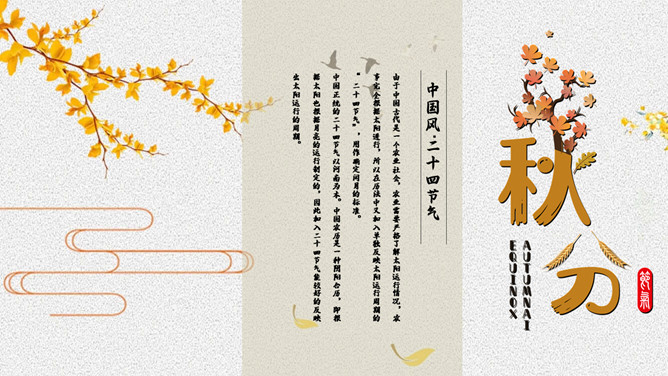 秋分
AUTUMNAI
EQUINOX
節氣
中国风·二十四节气
由于中国古代是一个农业社会，农业需要严格了解太阳运行情况，农
事完全根据太阳进行，所以在历法中又加入单独反映太阳运行周期的
“二十四节气”，用作确定闰月的标准。
中国正统的二十四节气以河南为本。中国农历是一种阴阳合历，即根
据太阳也根据月亮的运行制定的，因此加入二十四节气能较好的反映
出太阳运行的周期。